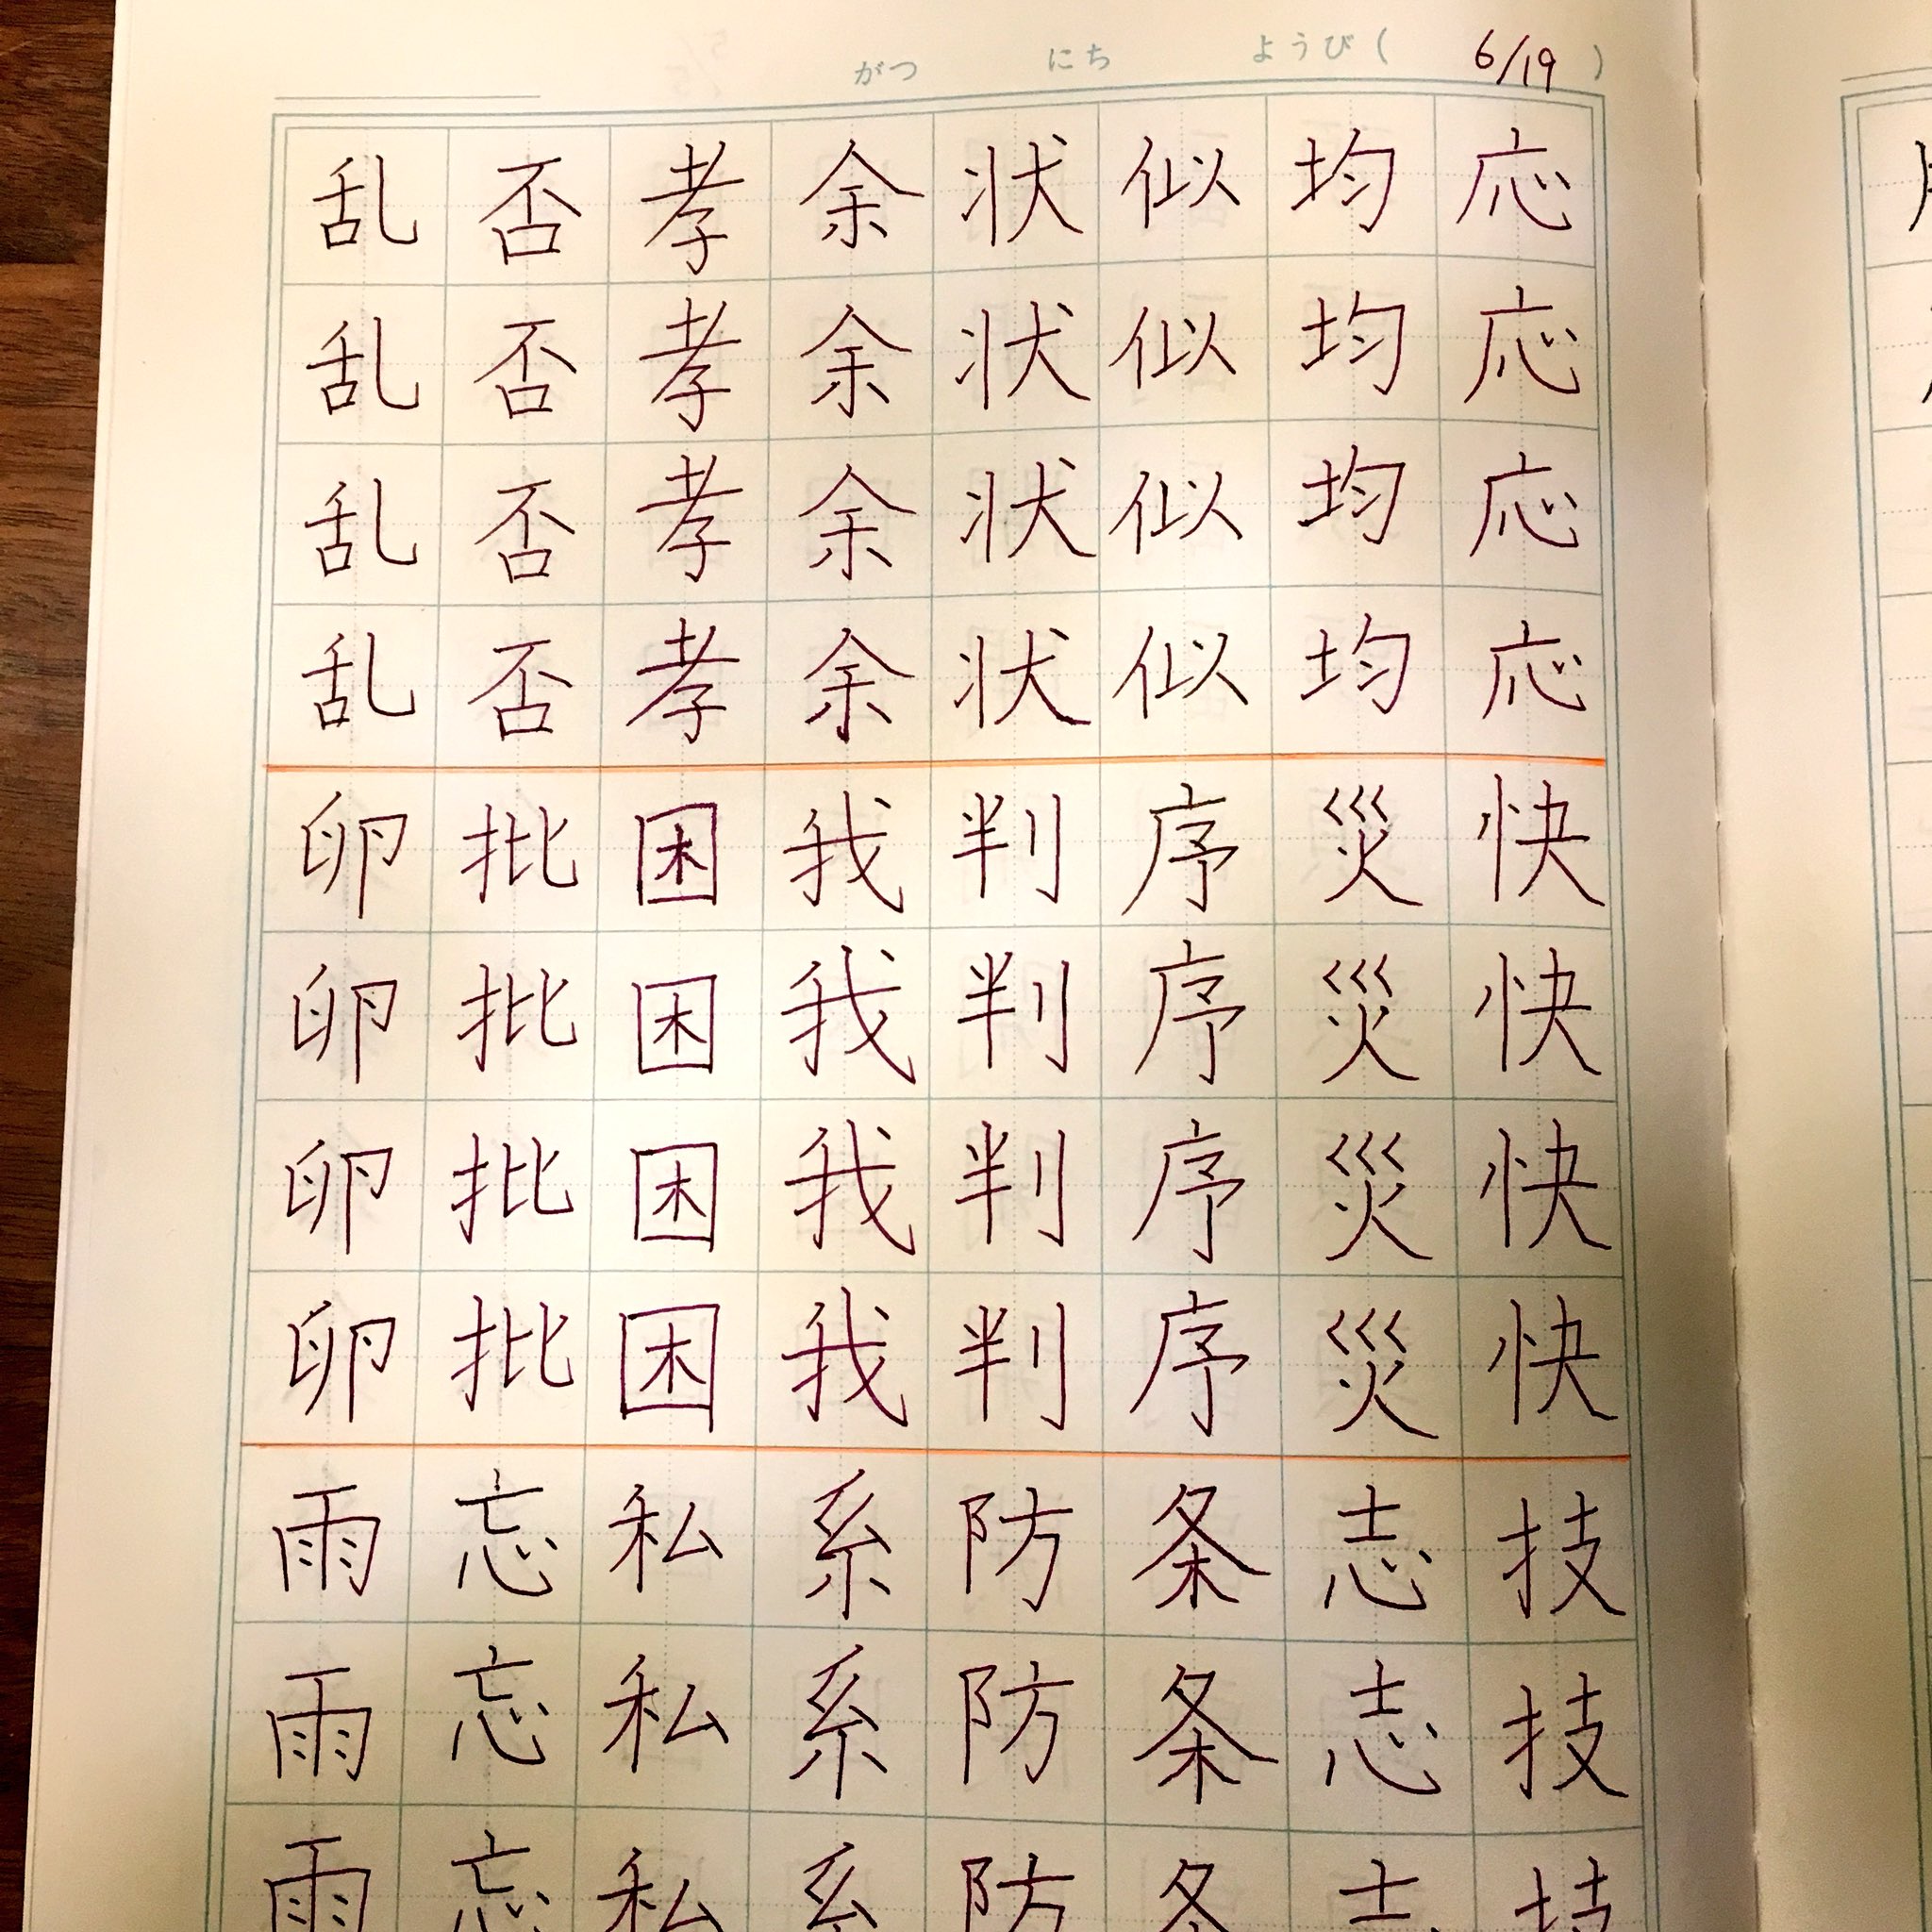 がつ にち ようび ( 6/19 )
応応応応快快快快技技技
均均均均災災災災志志志
似似似似序序序序条条条
状状状状判判判判防防防
余余余余我我我我系系系
孝孝孝孝困困困困私私私
否否否否批批批批忘忘忘
乱乱乱乱卵卵卵卵雨雨雨